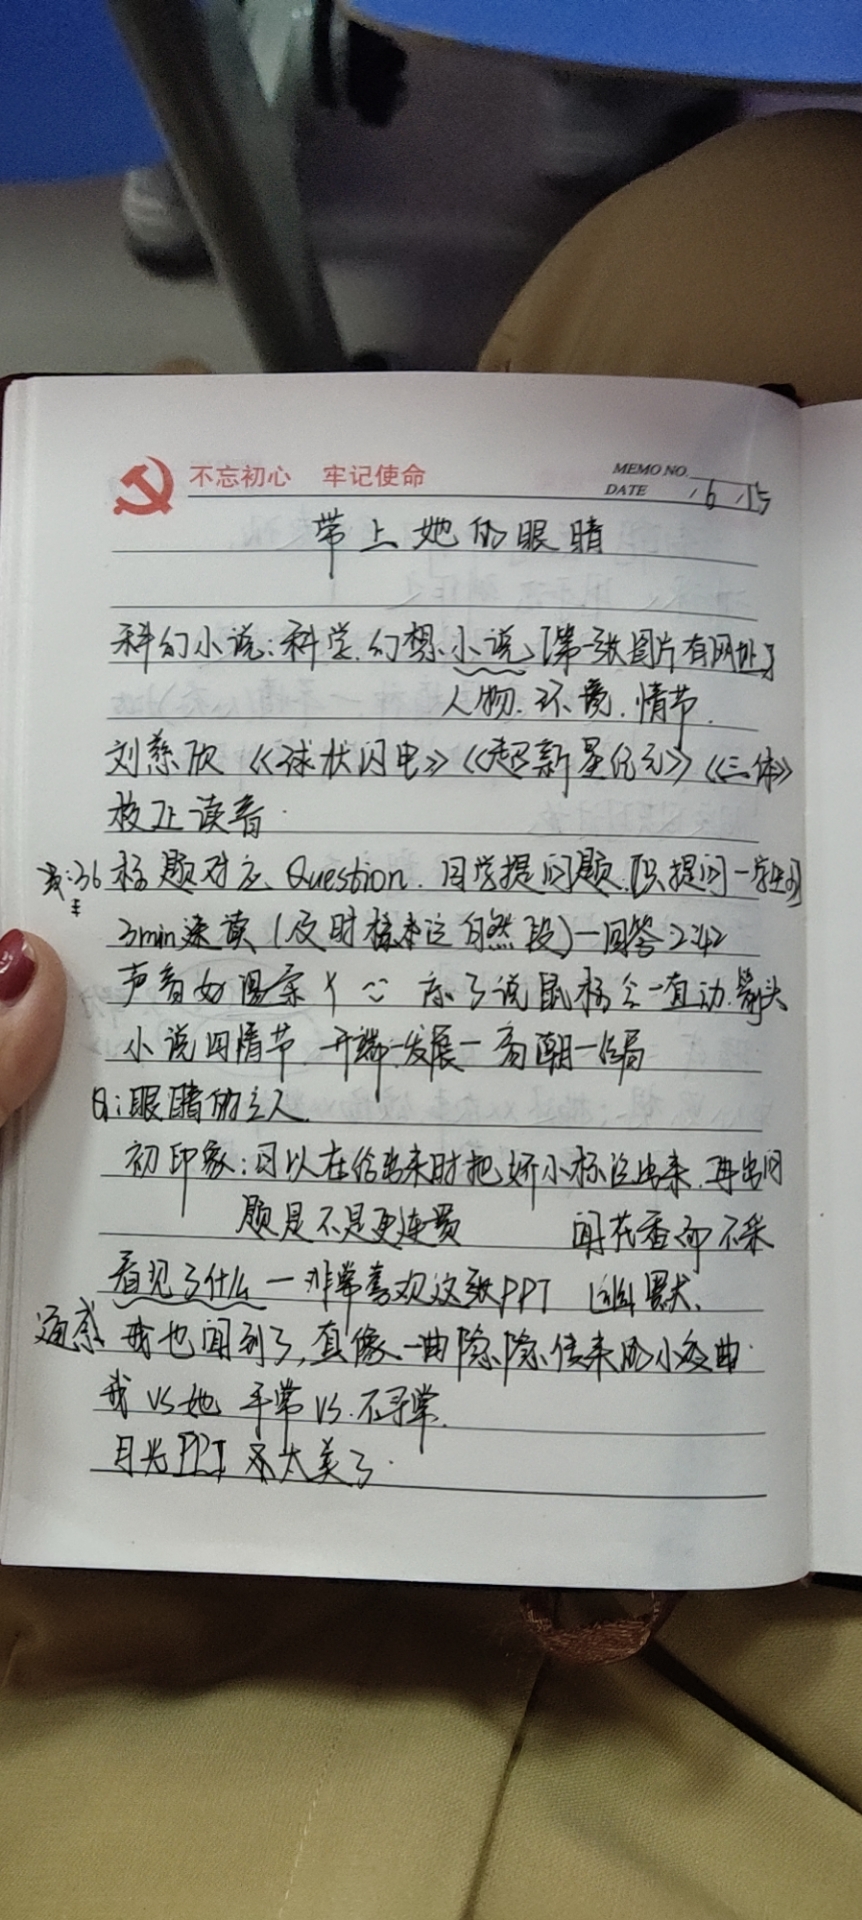 不忘初心 牢记使命
MEMO NO.
DATE / 6 / 15
带上她的眼睛
科幻小说:科学.幻想.小说.[第一张图片有网址]
人物.环境.情节.
刘慈欣《球状闪电》《超新星纪元》《三体》
校正读音.
:36 标题对应、Question.自学提问题.[只提问一学生的]
3min速读(及时标注自然段)一回答2:42
声音如 亲了说鼠标会一直动.箭头
小说四情节.开端一发展一高潮一结局
Q:眼睛的主人.
初印象:可以在给出来时把娇小标注出来.再出问
题是不是更连贯 闻花香而不采
看见了什么一非常喜欢这张PPT 幽默.
通感 我也闻到了,真像一曲隐隐传来的小夜曲.
我 VS 她 平常 VS.不寻常.
月光PPT 太美了.